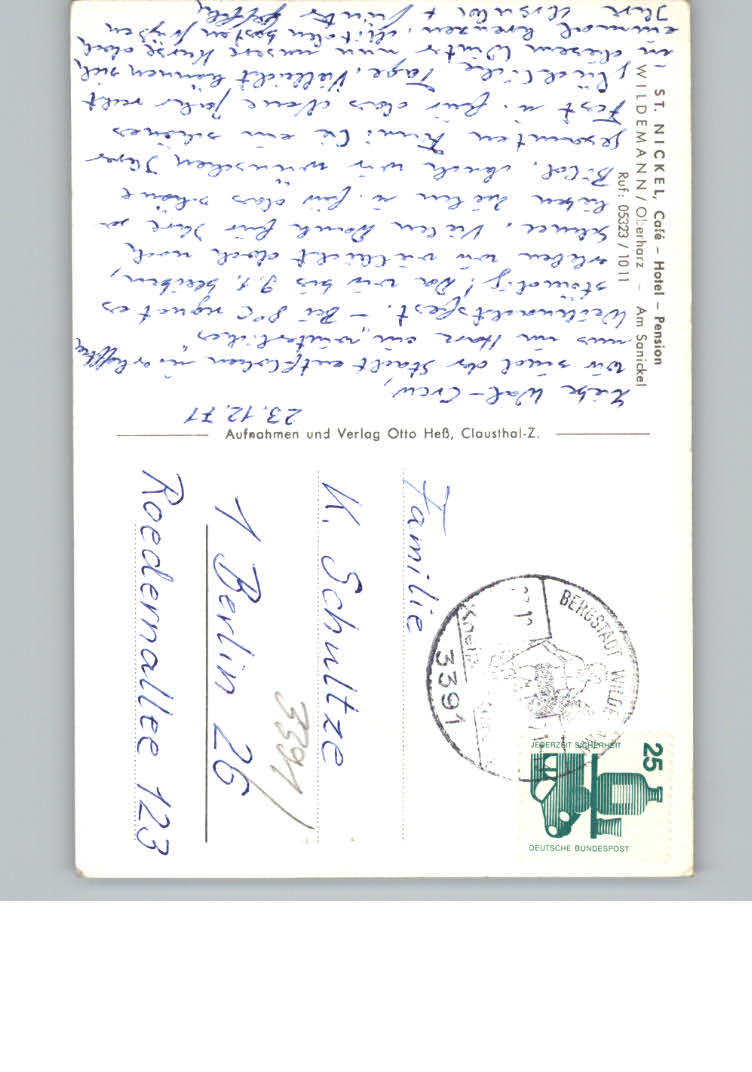 ST. NICKEL, Café – Hotel – Pension
WILDEMANN/Oberharz – Am Sanickel
Ruf: 05323 / 10 11
23.12.71
Liebe Wal-Crew,
wir sind der Stadt entflohen u. erhoffen
uns im Harz ein „winterliches"
Weihnachtsfest. – Bei 8°C regnet es
ständig! Da wir bis 9.1. bleiben,
erleben wir vielleicht doch noch
Schnee. Vielen Dank für Ihre
lieben Zeilen u. für das schöne
Bild. Auch wir wünschen Ihrer
gesamten Familie ein schönes
Fest u. für das Neue Jahr recht
glückliche Tage. Vielleicht können sich
in diesem Winter nun unsere Kurse doch
einmal kreuzen. Mit den besten Grüßen
Ihre Ursula + Günter
Aufnahmen und Verlag Otto Heß, Clausthal-Z.
Familie
K. Schultze
1 Berlin 26
Roedernallee 123
3391
BERGSTADT
3391
25
JEDERZEIT SICHERHEIT
DEUTSCHE BUNDESPOST